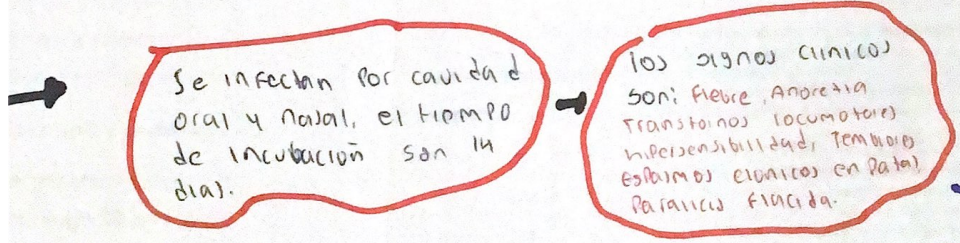 Se infectan por cavidad
oral y nasal, el tiempo
de incubación son 14
dias.
los signos clinicos
son: Fiebre, Anorexia
Transtornos locomotores
hipersensibilidad, Temblores
espasmos clonicos en patas,
Paralicis flacida.